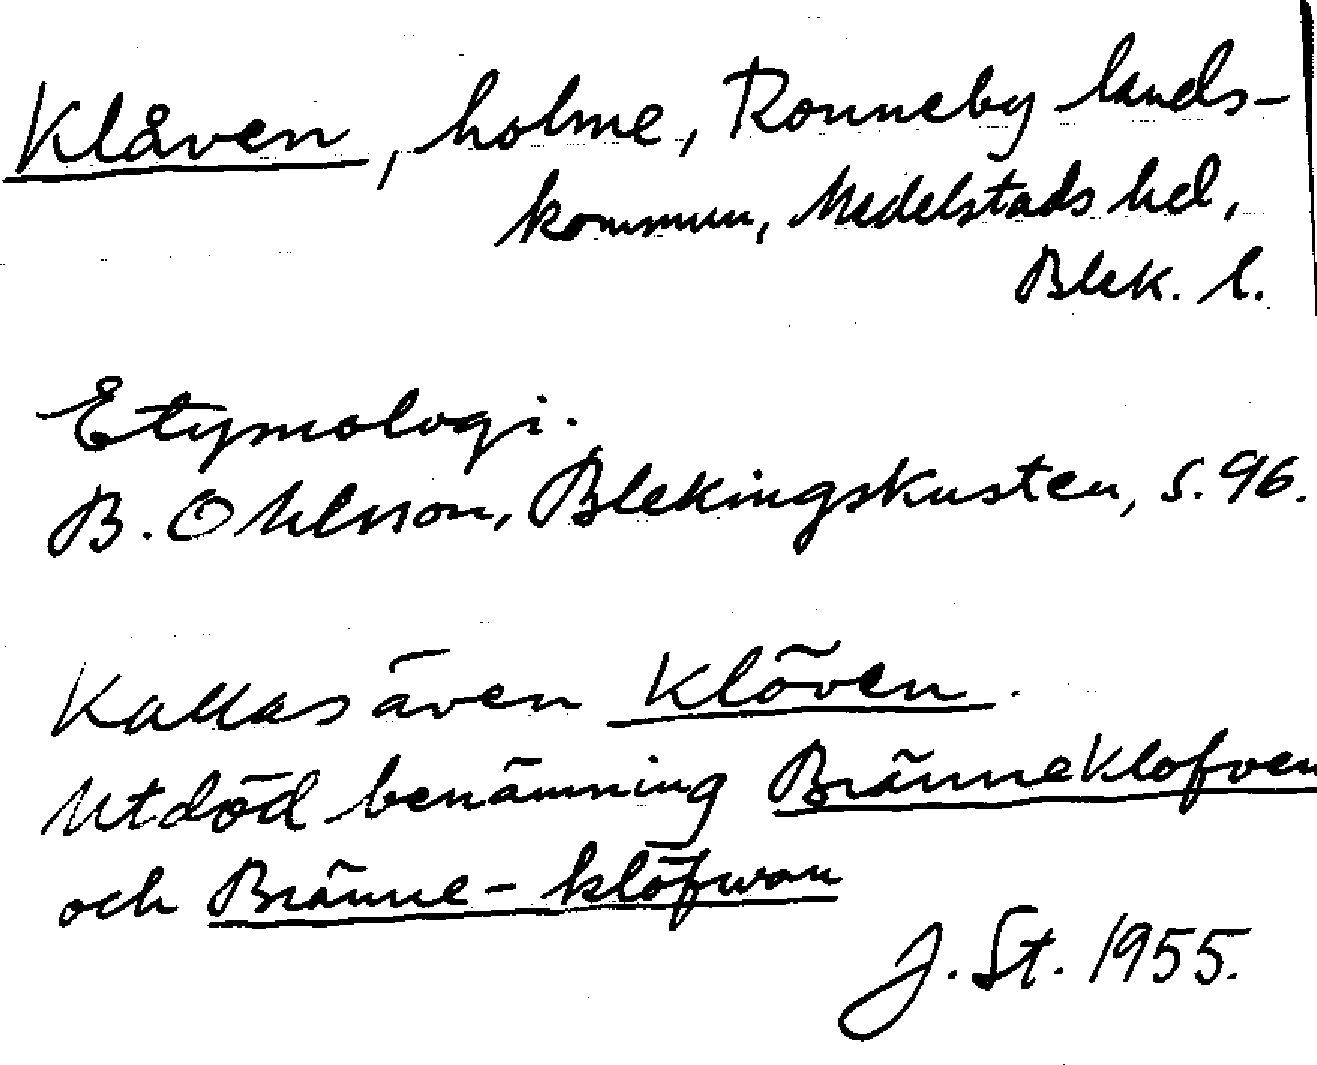 Klåven, holme, Ronneby lands-
kommun, Medelstads hd,
Blek. l.
Etymologi.
B. Ohlsson, Blekingskusten, s. 96.
Kallas även Klöven.
Utdöd benämning Bränneklofven
och Bränne-klöfwan
J. St. 1955.